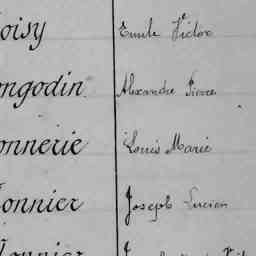 oisy Emile Victor
ngodin Alexandre Pierre
onnerie Louis Marie
onnier Joseph Lucien
onnier